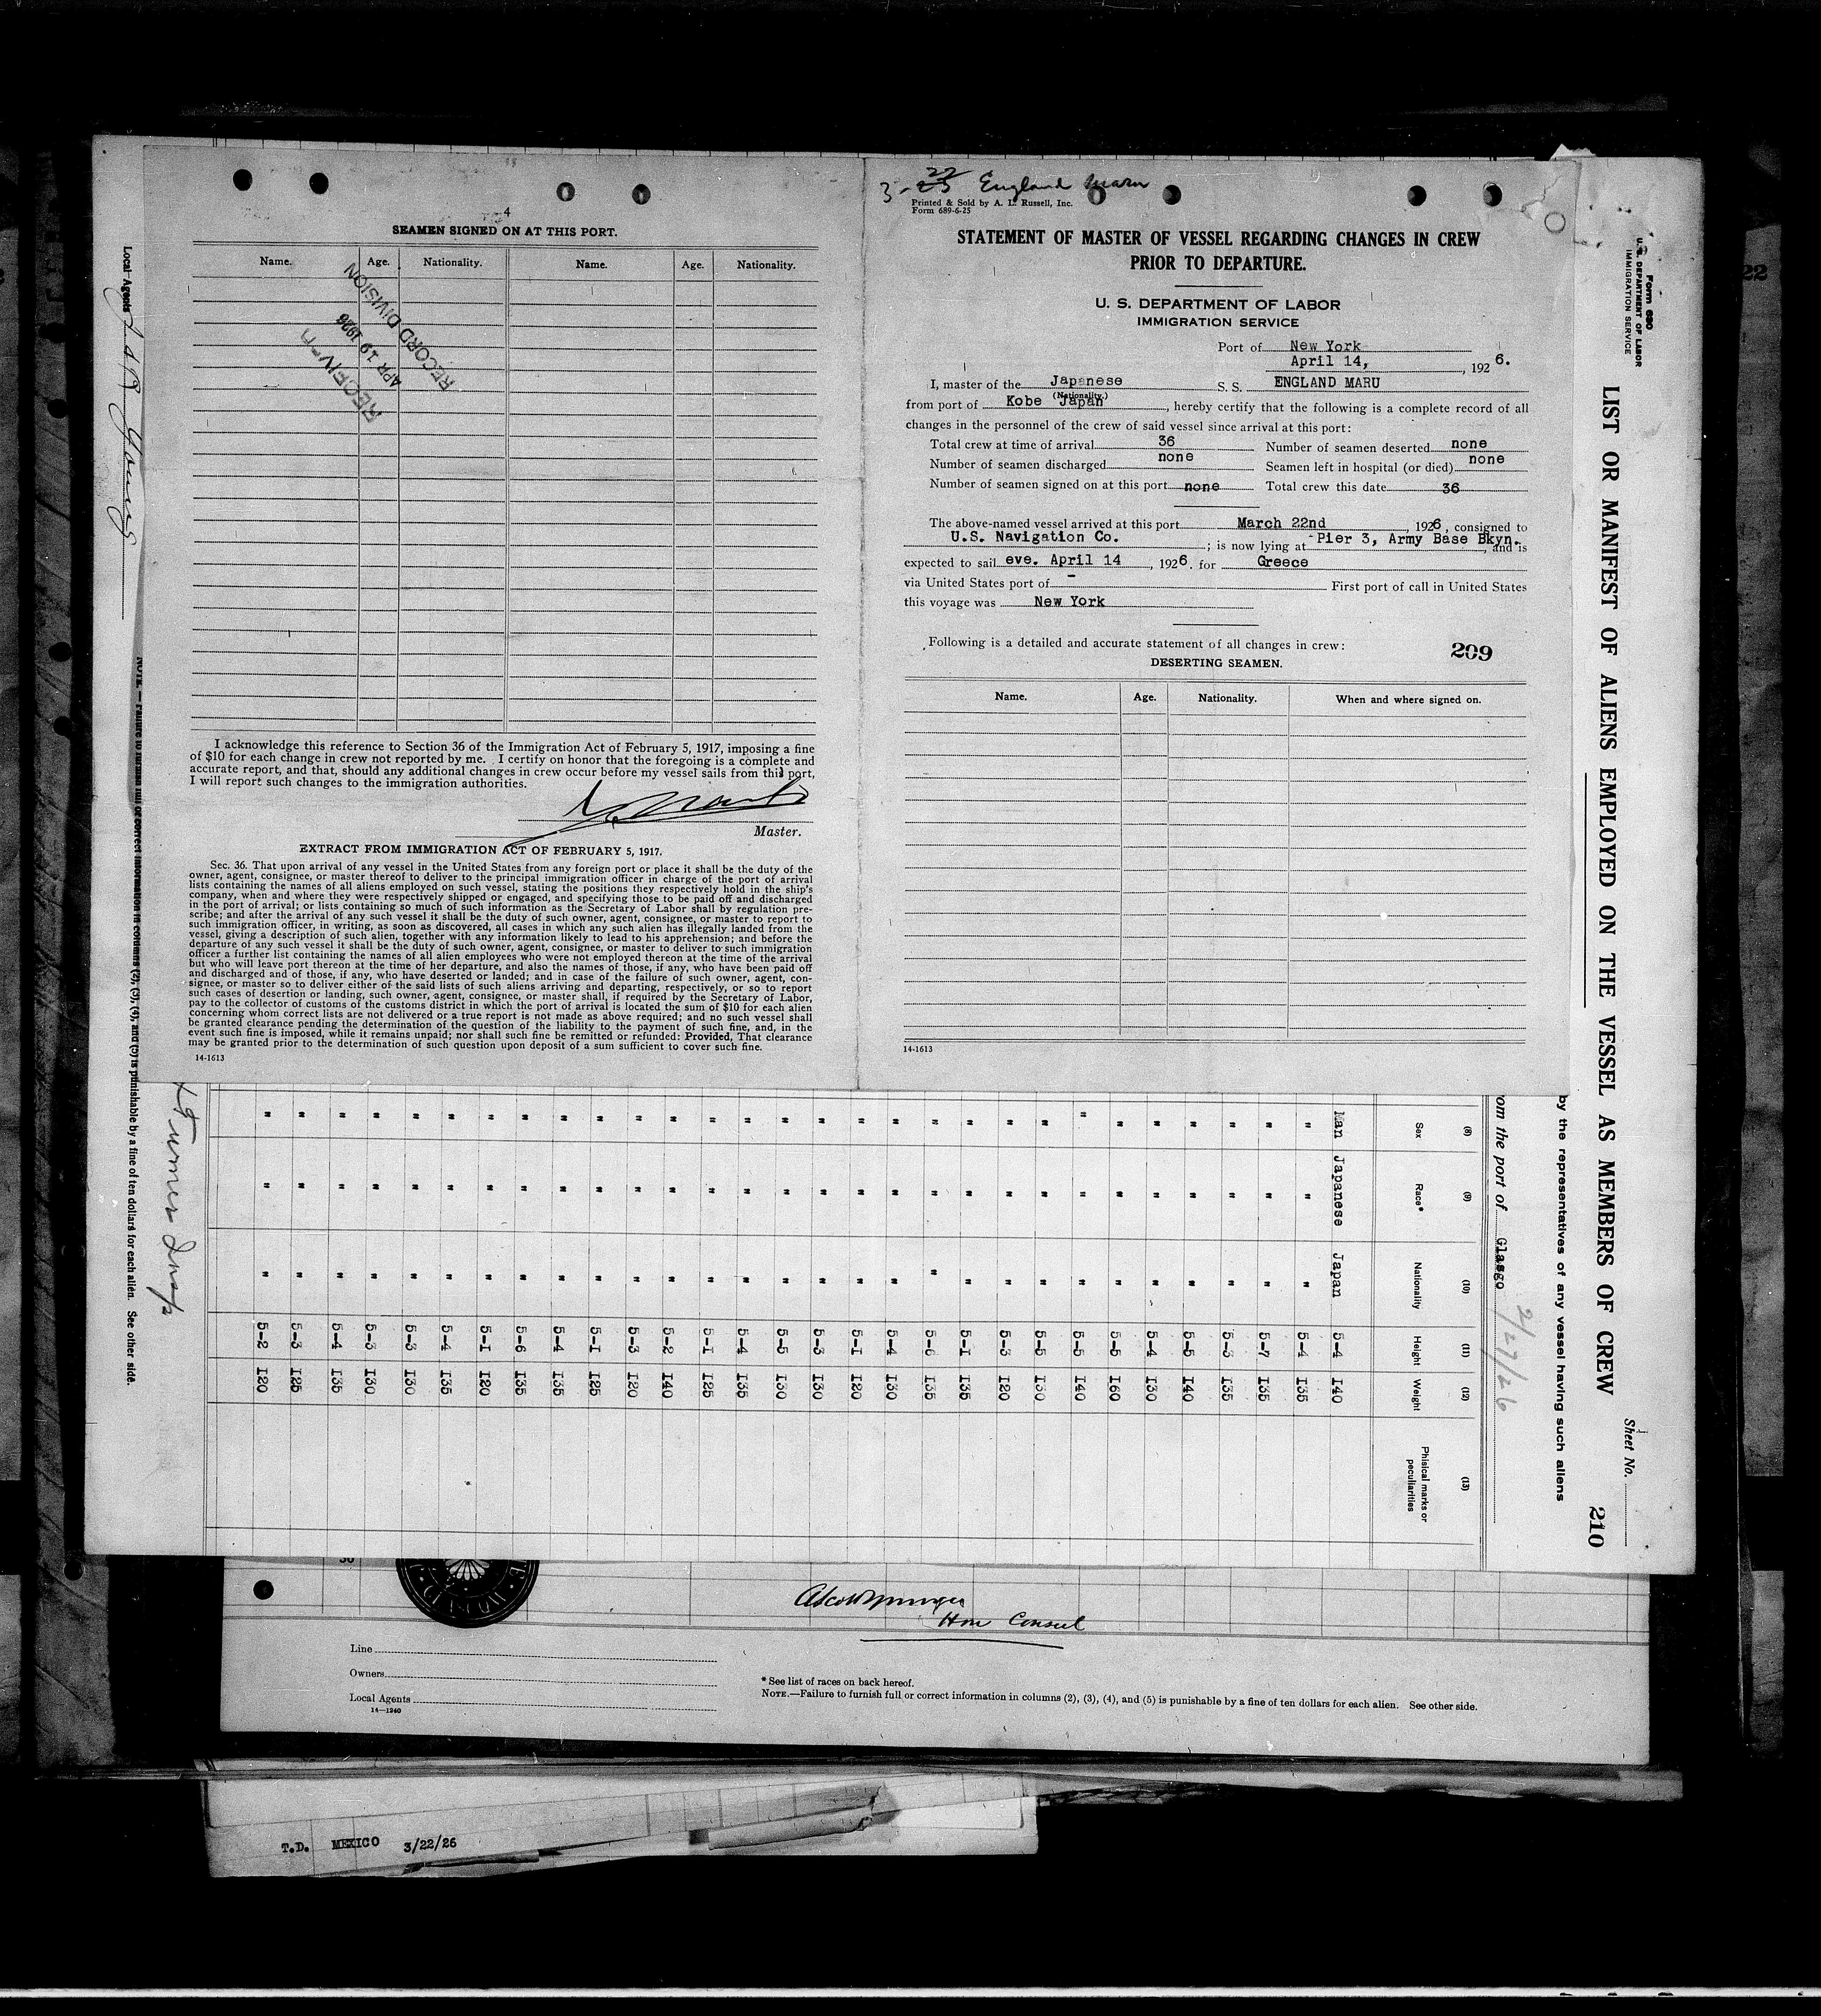 4
SEAMEN SIGNED ON AT THIS PORT.
Name. Age. Nationality. Name. Age. Nationality.
RECEIVED
APR 19 1926
RECORD DIVISION
I acknowledge this reference to Section 36 of the Immigration Act of February 5, 1917, imposing a fine
of $10 for each change in crew not reported by me. I certify on honor that the foregoing is a complete and
accurate report, and that, should any additional changes in crew occur before my vessel sails from this port,
I will report such changes to the immigration authorities.
Master.
EXTRACT FROM IMMIGRATION ACT OF FEBRUARY 5, 1917.
Sec. 36. That upon arrival of any vessel in the United States from any foreign port or place it shall be the duty of the
owner, agent, consignee, or master thereof to deliver to the principal immigration officer in charge of the port of arrival
lists containing the names of all aliens employed on such vessel, stating the positions they respectively hold in the ship's
company, when and where they were respectively shipped or engaged, and specifying those to be paid off and discharged
in the port of arrival; or lists containing so much of such information as the Secretary of Labor shall by regulation pre-
scribe; and after the arrival of any such vessel it shall be the duty of such owner, agent, consignee, or master to report to
such immigration officer, in writing, as soon as discovered, all cases in which any such alien has illegally landed from the
vessel, giving a description of such alien, together with any information likely to lead to his apprehension; and before the
departure of any such vessel it shall be the duty of such owner, agent, consignee, or master to deliver to such immigration
officer a further list containing the names of all alien employees who were not employed thereon at the time of the arrival
but who will leave port thereon at the time of her departure, and also the names of those, if any, who have been paid off
and discharged and of those, if any, who have deserted or landed; and in case of the failure of such owner, agent, con-
signee, or master so to deliver either of the said lists of such aliens arriving and departing, respectively, or so to report
such cases of desertion or landing, such owner, agent, consignee, or master shall, if required by the Secretary of Labor,
pay to the collector of customs of the customs district in which the port of arrival is located the sum of $10 for each alien
concerning whom correct lists are not delivered or a true report is not made as above required; and no such vessel shall
be granted clearance pending the determination of the question of the liability to the payment of such fine, and, in the
event such fine is imposed, while it remains unpaid; nor shall such fine be remitted or refunded: Provided, That clearance
may be granted prior to the determination of such question upon deposit of a sum sufficient to cover such fine.
14-1613
3-22 England Maru
Printed & Sold by A. L. Russell, Inc.
Form 689-6-25
STATEMENT OF MASTER OF VESSEL REGARDING CHANGES IN CREW
PRIOR TO DEPARTURE.
U. S. DEPARTMENT OF LABOR
IMMIGRATION SERVICE
Port of New York
April 14, , 192 6.
I, master of the Japanese S. S. ENGLAND MARU
(Nationality.)
from port of Kobe Japan , hereby certify that the following is a complete record of all
changes in the personnel of the crew of said vessel since arrival at this port:
Total crew at time of arrival 36 Number of seamen deserted none
Number of seamen discharged none Seamen left in hospital (or died) none
Number of seamen signed on at this port none Total crew this date 36
The above-named vessel arrived at this port March 22nd , 1926, consigned to
U.S. Navigation Co. ; is now lying at Pier 3, Army Base Bkyn. , and is
expected to sail eve. April 14 , 1926. for Greece
via United States port of - First port of call in United States
this voyage was New York
Following is a detailed and accurate statement of all changes in crew: 209
DESERTING SEAMEN.
Name. Age. Nationality. When and where signed on.
14-1613
Form 680
U. S. DEPARTMENT OF LABOR
IMMIGRATION SERVICE
LIST OR MANIFEST OF ALIENS EMPLOYED ON THE VESSEL AS MEMBERS OF CREW
Sheet No.
210
by the representatives of any vessel having such aliens
om the port of Glasgo 2/27/26
(8) (9) (10) (11) (12) (13)
Sex Race* Nationality Height Weight Phisical marks or peculiarities
Man Japanese Japan 5-4 140
" " " 5-4 135
" " " 5-7 135
" " " 5-3 135
" " " 5-5 140
" " " 5-4 130
" " " 5-5 160
" " " 5-5 140
" " " 5-5 130
" " " 5-3 120
" " " 5-1 135
" " " 5-6 135
" " " 5-4 130
" " " 5-1 120
" " " 5-3 130
" " " 5-5 130
" " " 5-4 135
" " " 5-1 125
" " " 5-2 140
" " " 5-3 120
" " " 5-1 125
" " " 5-4 135
" " " 5-6 135
" " " 5-1 120
" " " 5-4 135
" " " 5-3 130
" " " 5-3 130
" " " 5-4 135
" " " 5-3 125
" " " 5-2 120
Turner Insp
NOTE.—Failure to furnish full or correct information in columns (2), (3), (4), and (5) is punishable by a fine of ten dollars for each alien. See other side.
Local Agents
30
Hon Consul
Line
Owners
Local Agents
14—1240
* See list of races on back hereof.
NOTE.—Failure to furnish full or correct information in columns (2), (3), (4), and (5) is punishable by a fine of ten dollars for each alien. See other side.
T.D. MEXICO 3/22/26
22